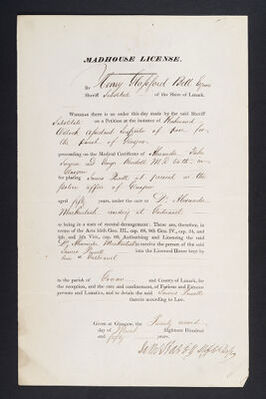 MADHOUSE LICENSE.
By Henry Glassford Bell Esquire
Sheriff Substitute of the Shire of Lanark.
WHEREAS there is on this day made by the said Sheriff
Substitute on a Petition at the instance of
Assistant Inspector of Poor for
the Parish of Glasgow
proceeding on the Medical Certificate of Alexander
Surgeon and George M.D. both in
Glasgow
for placing James at present in the
police office of Glasgow
aged fifty years, under the care of Dr Alexander
Mackintosh residing at Gartnavel
as being in a state of mental derangement: These are, therefore, in
terms of the Acts 55th Geo. III., cap. 69, 9th Geo. IV., cap. 34, and
4th and 5th Vict., cap. 60, Authorising and Licensing the said
Dr Alexander Mackintosh to receive the person of the said
James into the Licensed House kept by
him at Gartnavel
in the parish of Govan and County of Lanark, for
the reception, and the care and confinement, of Furious and Fatuous
persons and Lunatics, and to detain the said James
therein according to Law.
Given at Glasgow, the Twenty second
day of Eighteen Hundred
and fifty years.